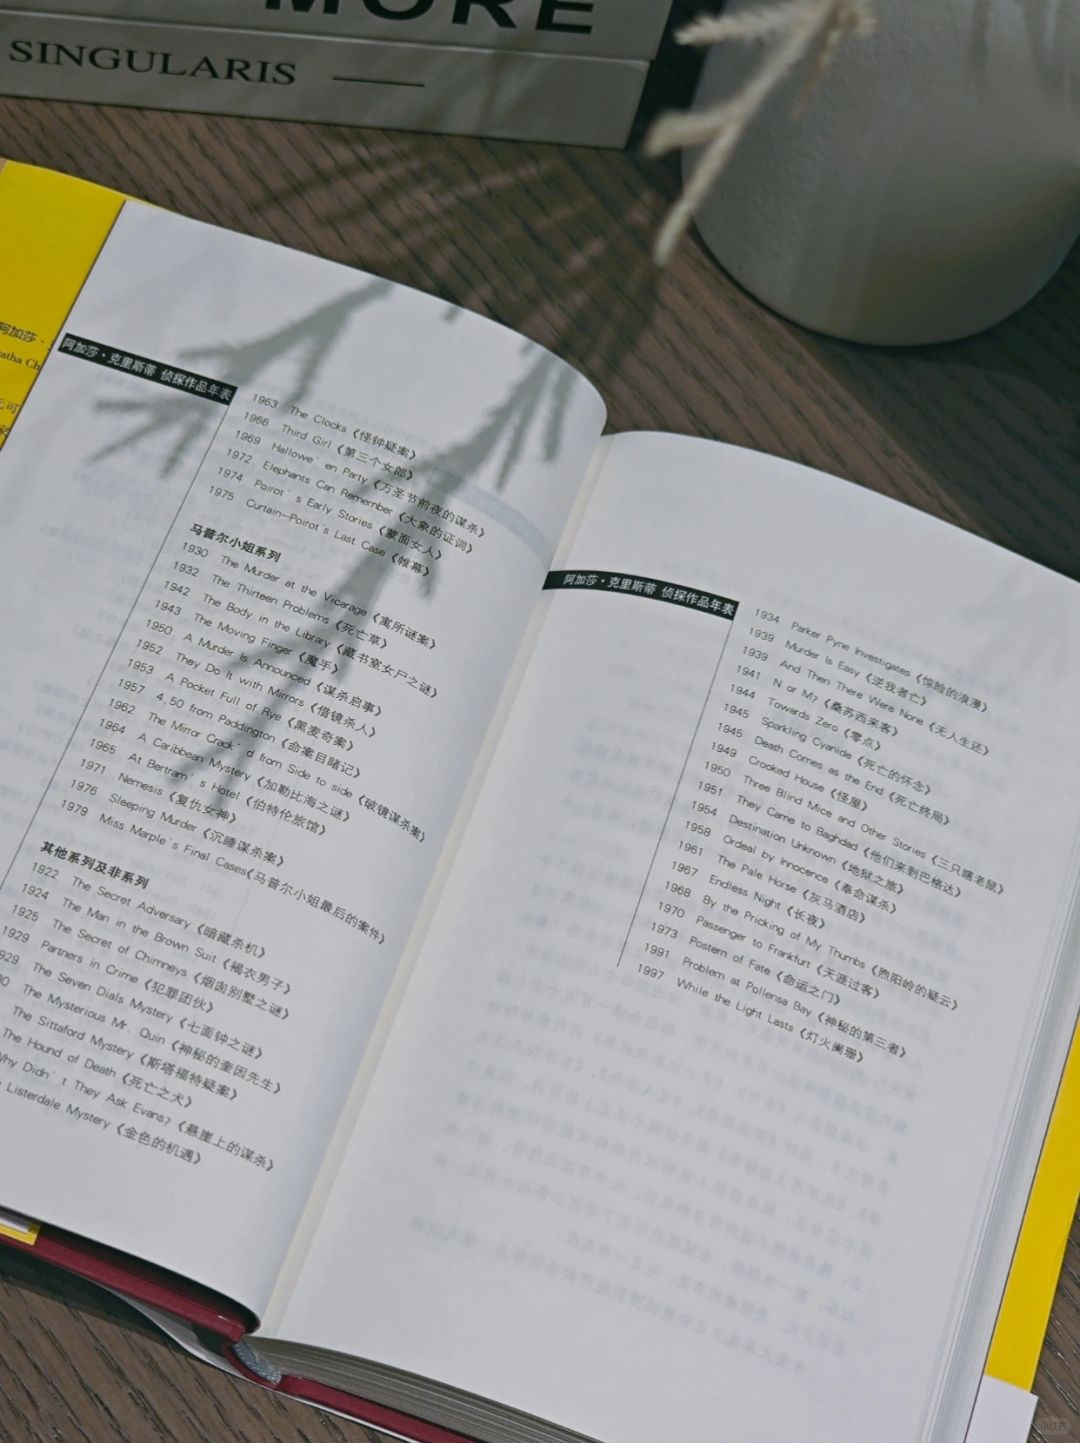 MORE
SINGULARIS
阿加莎·
atha Ch
阿加莎·克里斯蒂 侦探作品年表
1963 The Clocks《怪钟疑案》
1966 Third Girl《第三个女郎》
1969 Hallowe' en Party《万圣节前夜的谋杀》
1972 Elephants Can Remember《大象的证词》
1974 Poirot' s Early Stories《蒙面女人》
1975 Curtain—Poirot's Last Case《帷幕》
马普尔小姐系列
1930 The Murder at the Vicarage《寓所谜案》
1932 The Thirteen Problems《死亡草》
1942 The Body in the Library《藏书室女尸之谜》
1943 The Moving Finger《魔手》
1950 A Murder Is Announced《谋杀启事》
1952 They Do It with Mirrors《借镜杀人》
1953 A Pocket Full of Rye《黑麦奇案》
1957 4.50 from Paddington《命案目睹记》
1962 The Mirror Crack' d from Side to side《破镜谋杀案》
1964 A Caribbean Mystery《加勒比海之谜》
1965 At Bertram' s Hotel《伯特伦旅馆》
1971 Nemesis《复仇女神》
1976 Sleeping Murder《沉睡谋杀案》
1979 Miss Marple' s Final Cases《马普尔小姐最后的案件》
其他系列及非系列
1922 The Secret Adversary《暗藏杀机》
1924 The Man in the Brown Suit《褐衣男子》
1925 The Secret of Chimneys《烟囱别墅之谜》
1929 Partners in Crime《犯罪团伙》
929 The Seven Dials Mystery《七面钟之谜》
0 The Mysterious Mr. Quin《神秘的奎因先生》
The Sittaford Mystery《斯塔福特疑案》
The Hound of Death《死亡之犬》
Why Didn' t They Ask Evans?《悬崖上的谋杀》
Listerdale Mystery《金色的机遇》
阿加莎·克里斯蒂 侦探作品年表
1934 Parker Pyne Investigates《惊险的浪漫》
1939 Murder Is Easy《逆我者亡》
1939 And Then There Were None《无人生还》
1941 N or M?《桑苏西来客》
1944 Towards Zero《零点》
1945 Sparkling Cyanide《死亡的怀念》
1945 Death Comes as the End《死亡终局》
1949 Crooked House《怪屋》
1950 Three Blind Mice and Other Stories《三只瞎老鼠》
1951 They Came to Baghdad《他们来到巴格达》
1954 Destination Unknown《地狱之旅》
1958 Ordeal by Innocence《奉命谋杀》
1961 The Pale Horse《灰马酒店》
1967 Endless Night《长夜》
1968 By the Pricking of My Thumbs《煦阳岭的疑云》
1970 Passenger to Frankfurt《天涯过客》
1973 Postern of Fate《命运之门》
1991 Problem at Pollensa Bay《神秘的第三者》
1997 While the Light Lasts《灯火阑珊》